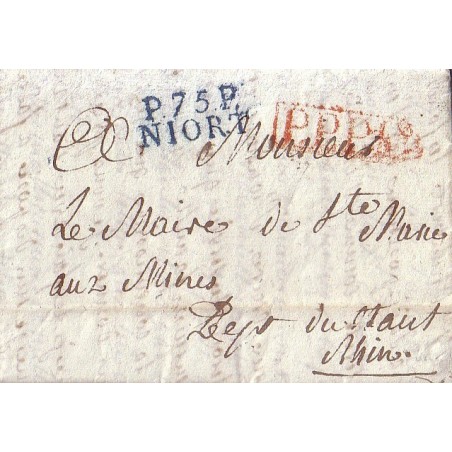 P.75.P.
NIORT
Monsieur
Le Maire de Ste Marie
aux Mines
Dept du haut
Rhin.